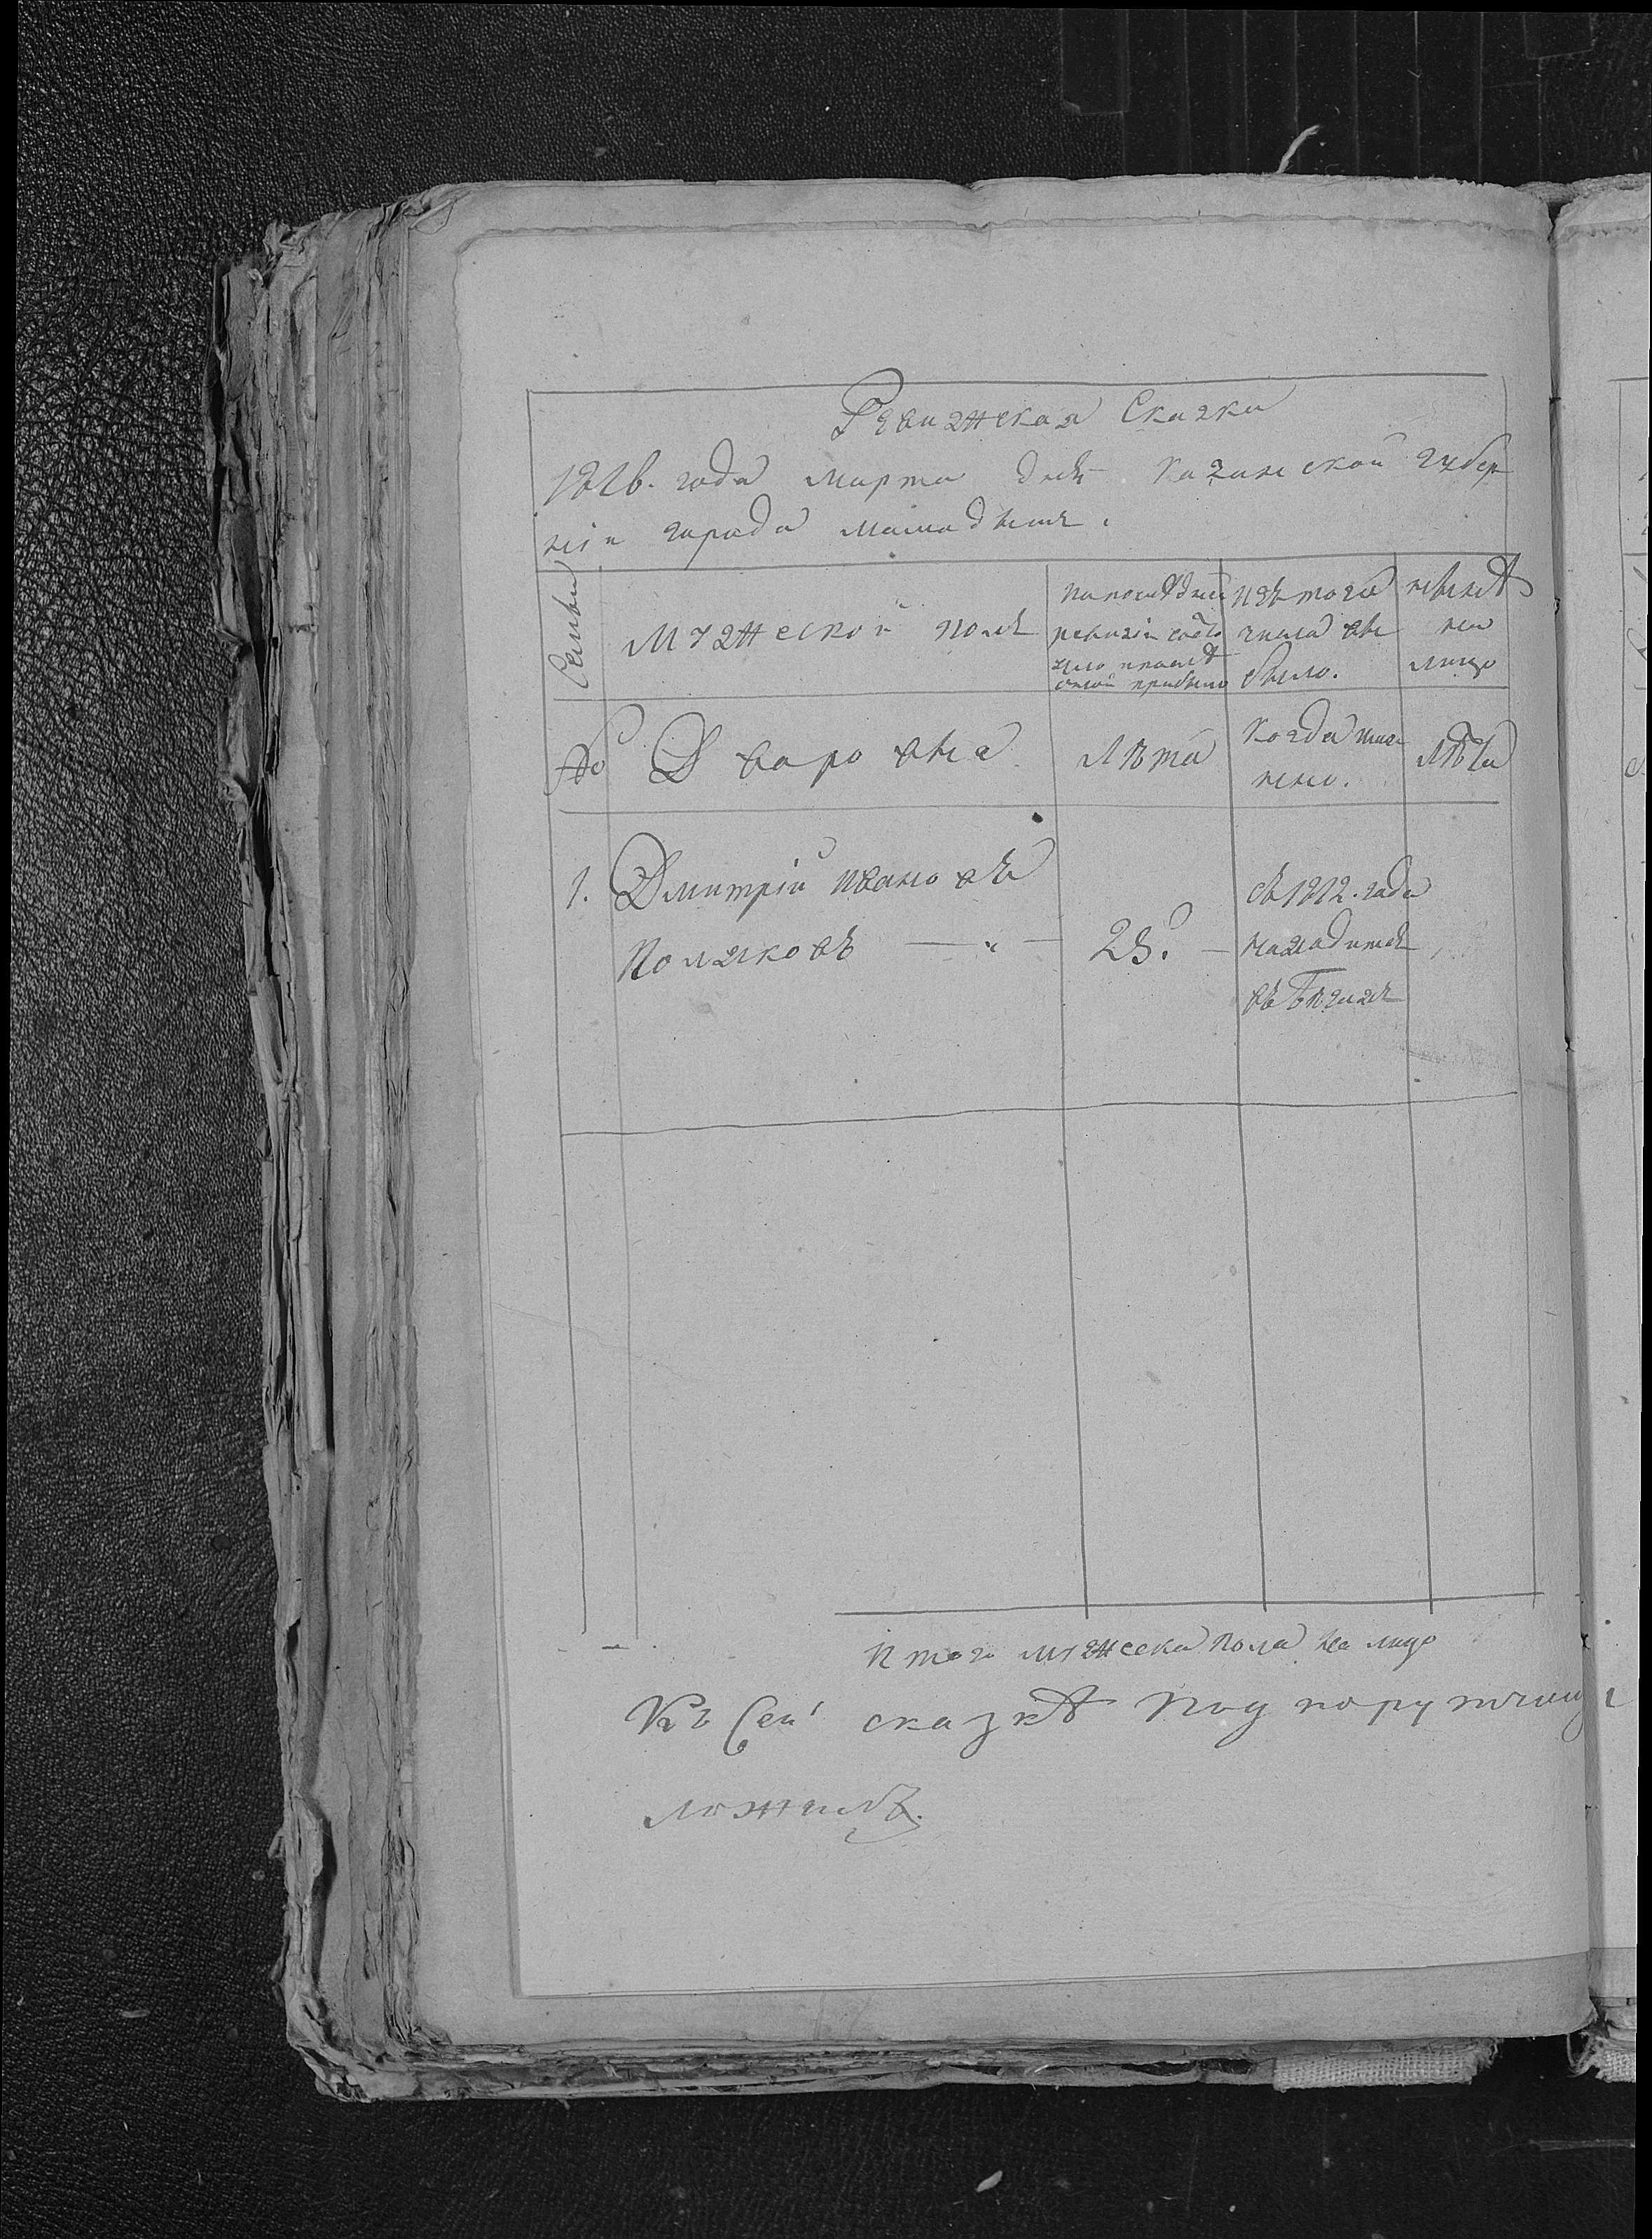 Ревижская Сказка
1816. года марта дня казанской губер
ніи города мамадыша.
Семьи
мужеской полъ
напоследней
ревизіи состо
яло и после
оной прибыло
изъ того
числа вы
было.
ныне
на
лицо
№
Дворовые
лѣта
когда имян
нено.
лѣта
1. Дмитрій ивановъ
поляковъ
25.
съ 1812. года
находится
въ Бегахъ
итого мужеска пола на лицо
Къ сей сказкѣ Подпорутчиц